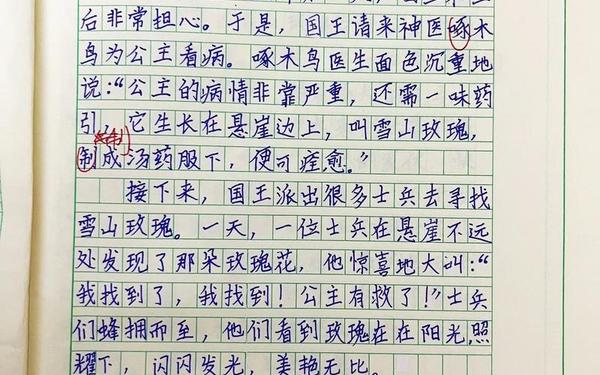 后非常担心。于是,国王请来神医啄木
鸟为公主看病。啄木鸟医生面色沉重地
说:“公主的病情非常严重,还需一味药
引,它生长在悬崖边上,叫雪山玫瑰,
制成汤药服下,便可痊愈。”
接下来,国王派出很多士兵去寻找
雪山玫瑰。一天,一位士兵在悬崖不远
处发现了那朵玫瑰花,他惊喜地大叫:“
我找到了,我找到!公主有救了!”士兵
们蜂拥而至,他们看到玫瑰在在阳光照
耀下,闪闪发光,美艳无比。